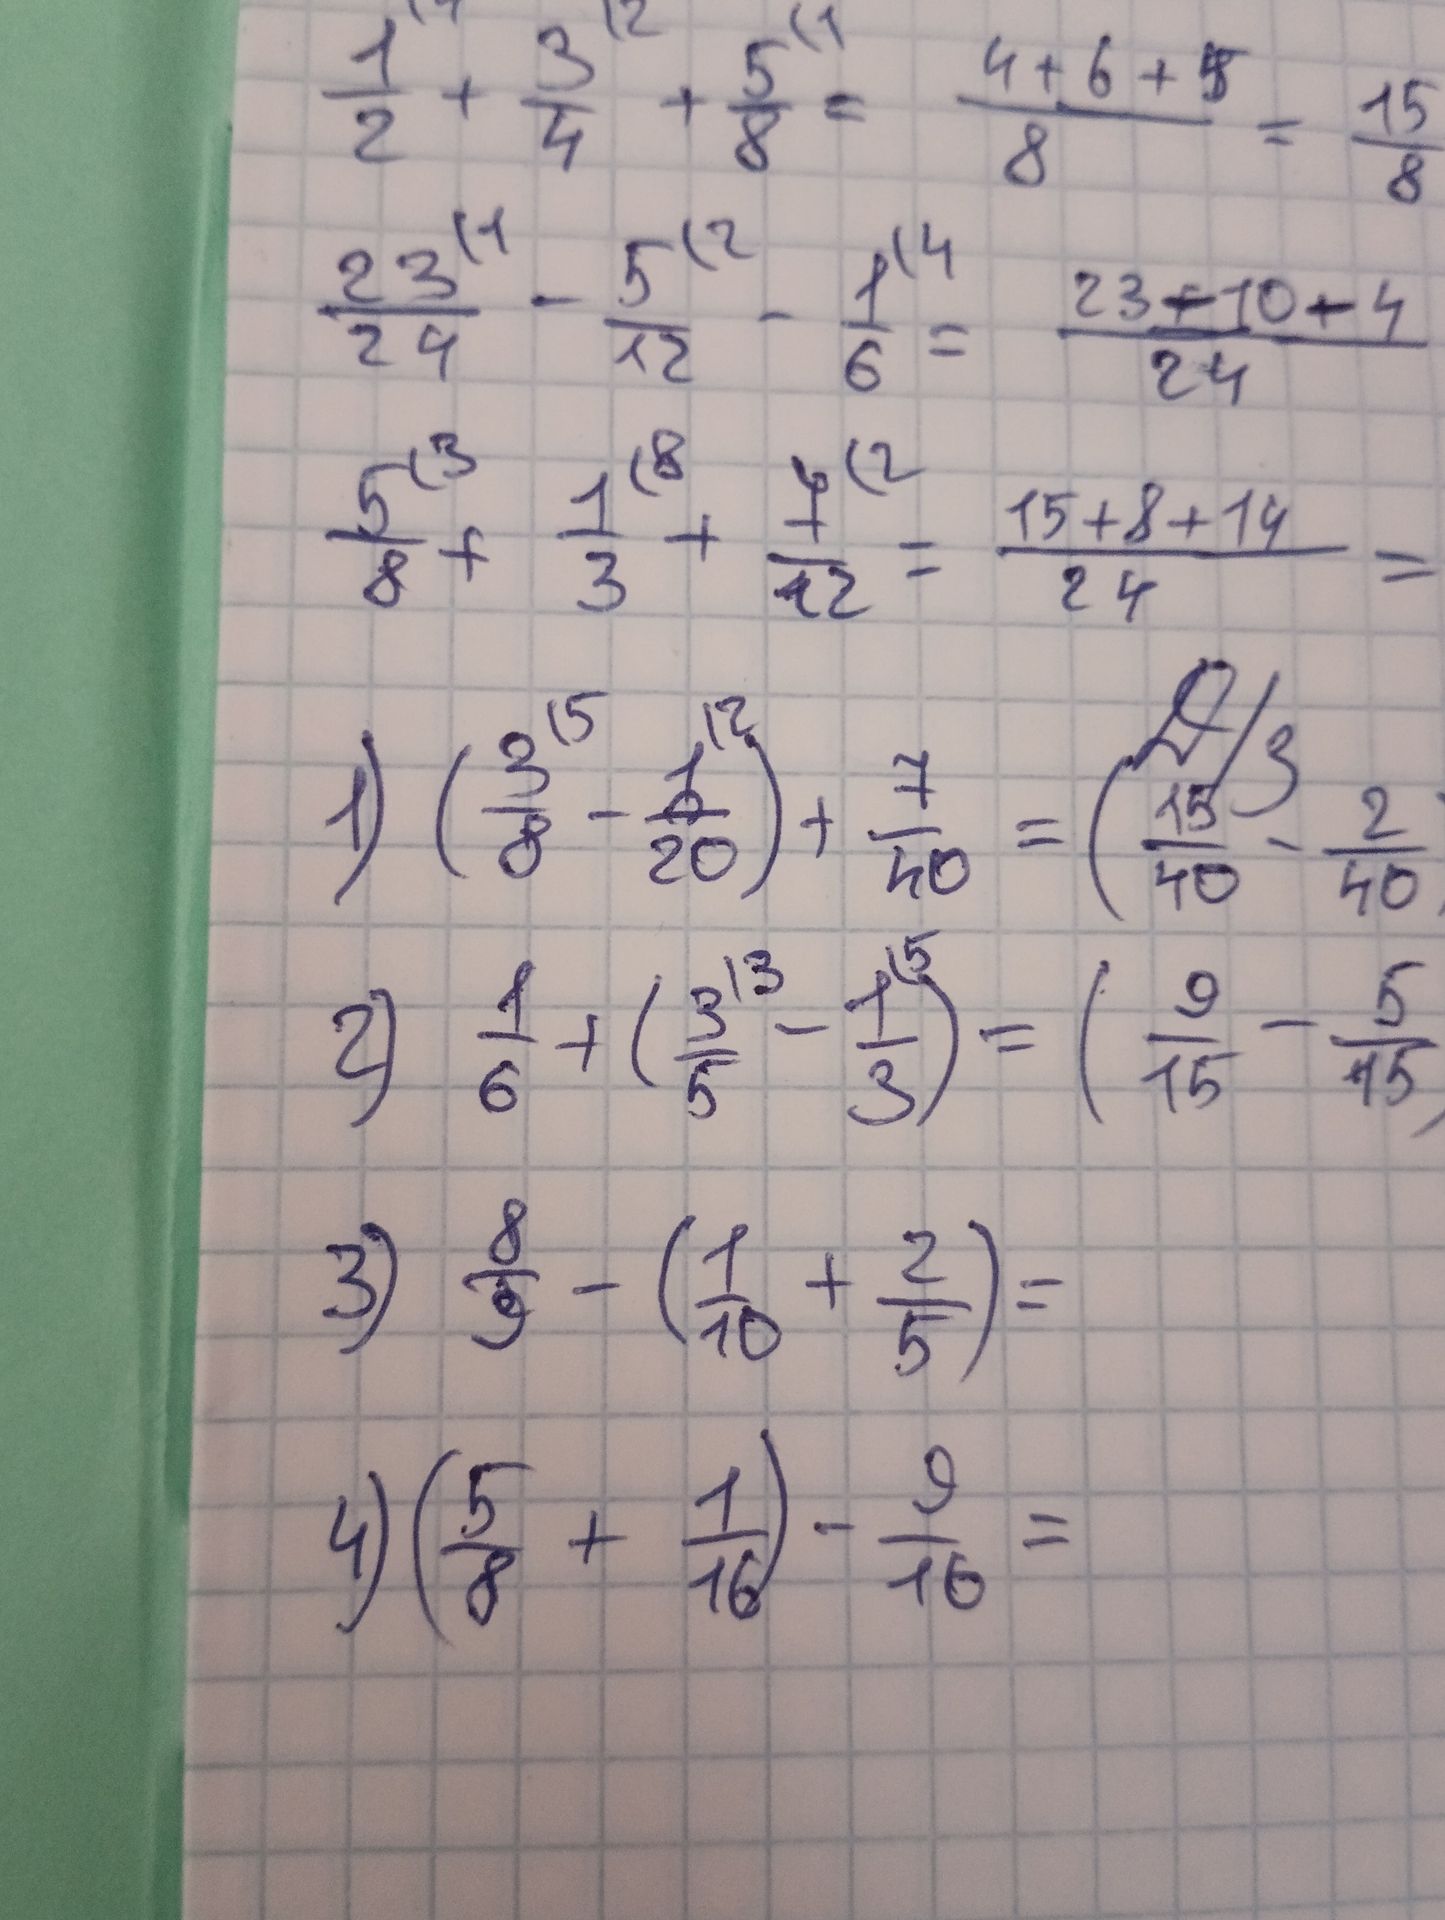 1/2 (4 + 3/4 (2 + 5/8 (1 = (4+6+5)/8 = 15/8
23/24 (1 - 5/12 (2 - 1/6 (4 = (23-10-4)/24
5/8 (3 + 1/3 (8 + 7/12 (2 = (15+8+14)/24 =
1) (3/8 (5 - 1/20 (2) + 7/40 = (15/40 - 2/40)
2) 1/6 + (3/5 (3 - 1/3 (5) = (9/15 - 5/15)
3) 8/9 - (1/10 + 2/5) =
4) (5/8 + 1/16) - 9/16 =